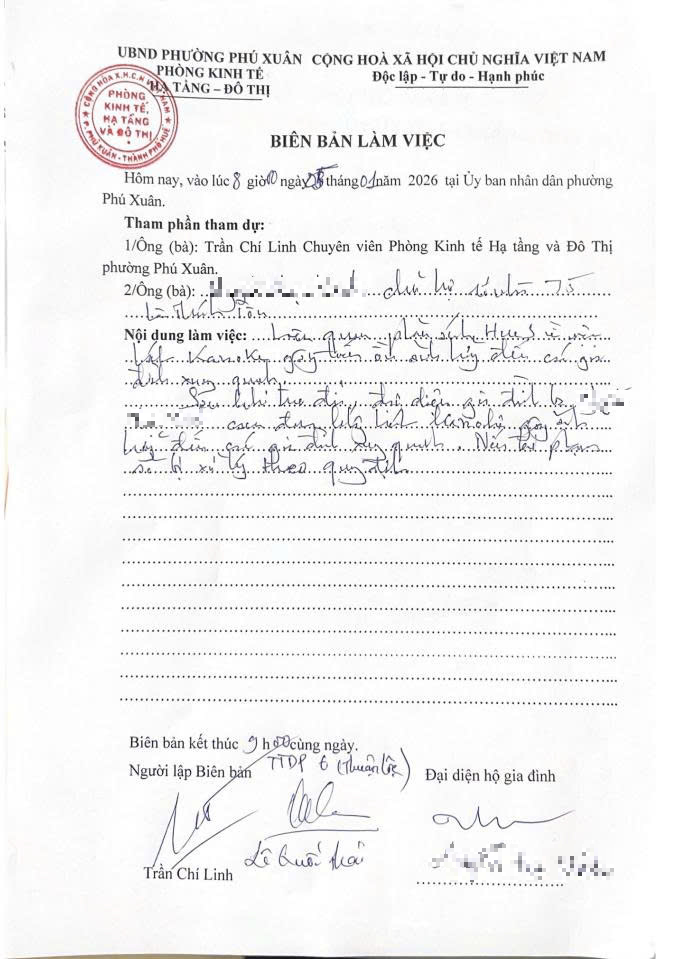 UBND PHƯỜNG PHÚ XUÂN CỘNG HOÀ XÃ HỘI CHỦ NGHĨA VIỆT NAM
PHÒNG KINH TẾ Độc lập - Tự do - Hạnh phúc
HẠ TẦNG – ĐÔ THỊ
CỘNG HÒA X.H.C.N VIỆT NAM
PHÒNG
KINH TẾ,
HẠ TẦNG
VÀ ĐÔ THỊ
P. PHÚ XUÂN - THÀNH PHỐ HUẾ
BIÊN BẢN LÀM VIỆC
Hôm nay, vào lúc 8 giờ 00 ngày tháng 01 năm 2026 tại Ủy ban nhân dân phường
Phú Xuân.
Tham phần tham dự:
1/Ông (bà): Trần Chí Linh Chuyên viên Phòng Kinh tế Hạ tầng và Đô Thị
phường Phú Xuân.
2/Ông (bà): chủ hộ số nhà 75
Lê Thánh Tôn
Nội dung làm việc: Liên quan phản ánh Hue S về việc
hát Karaoke gây tiếng ồn ảnh hưởng đến các gia
đình xung quanh.
Sau khi trao đổi, đại diện gia đình bà
cam đoan không hát karaoke gây ảnh
hưởng đến các gia đình xung quanh. Nếu tái phạm
sẽ bị xử lý theo quy định
Biên bản kết thúc 9 h 00 cùng ngày.
Người lập Biên bản TTDP 6 (Thuận Lộc) Đại diện hộ gia đình
Trần Chí Linh Lê Quốc